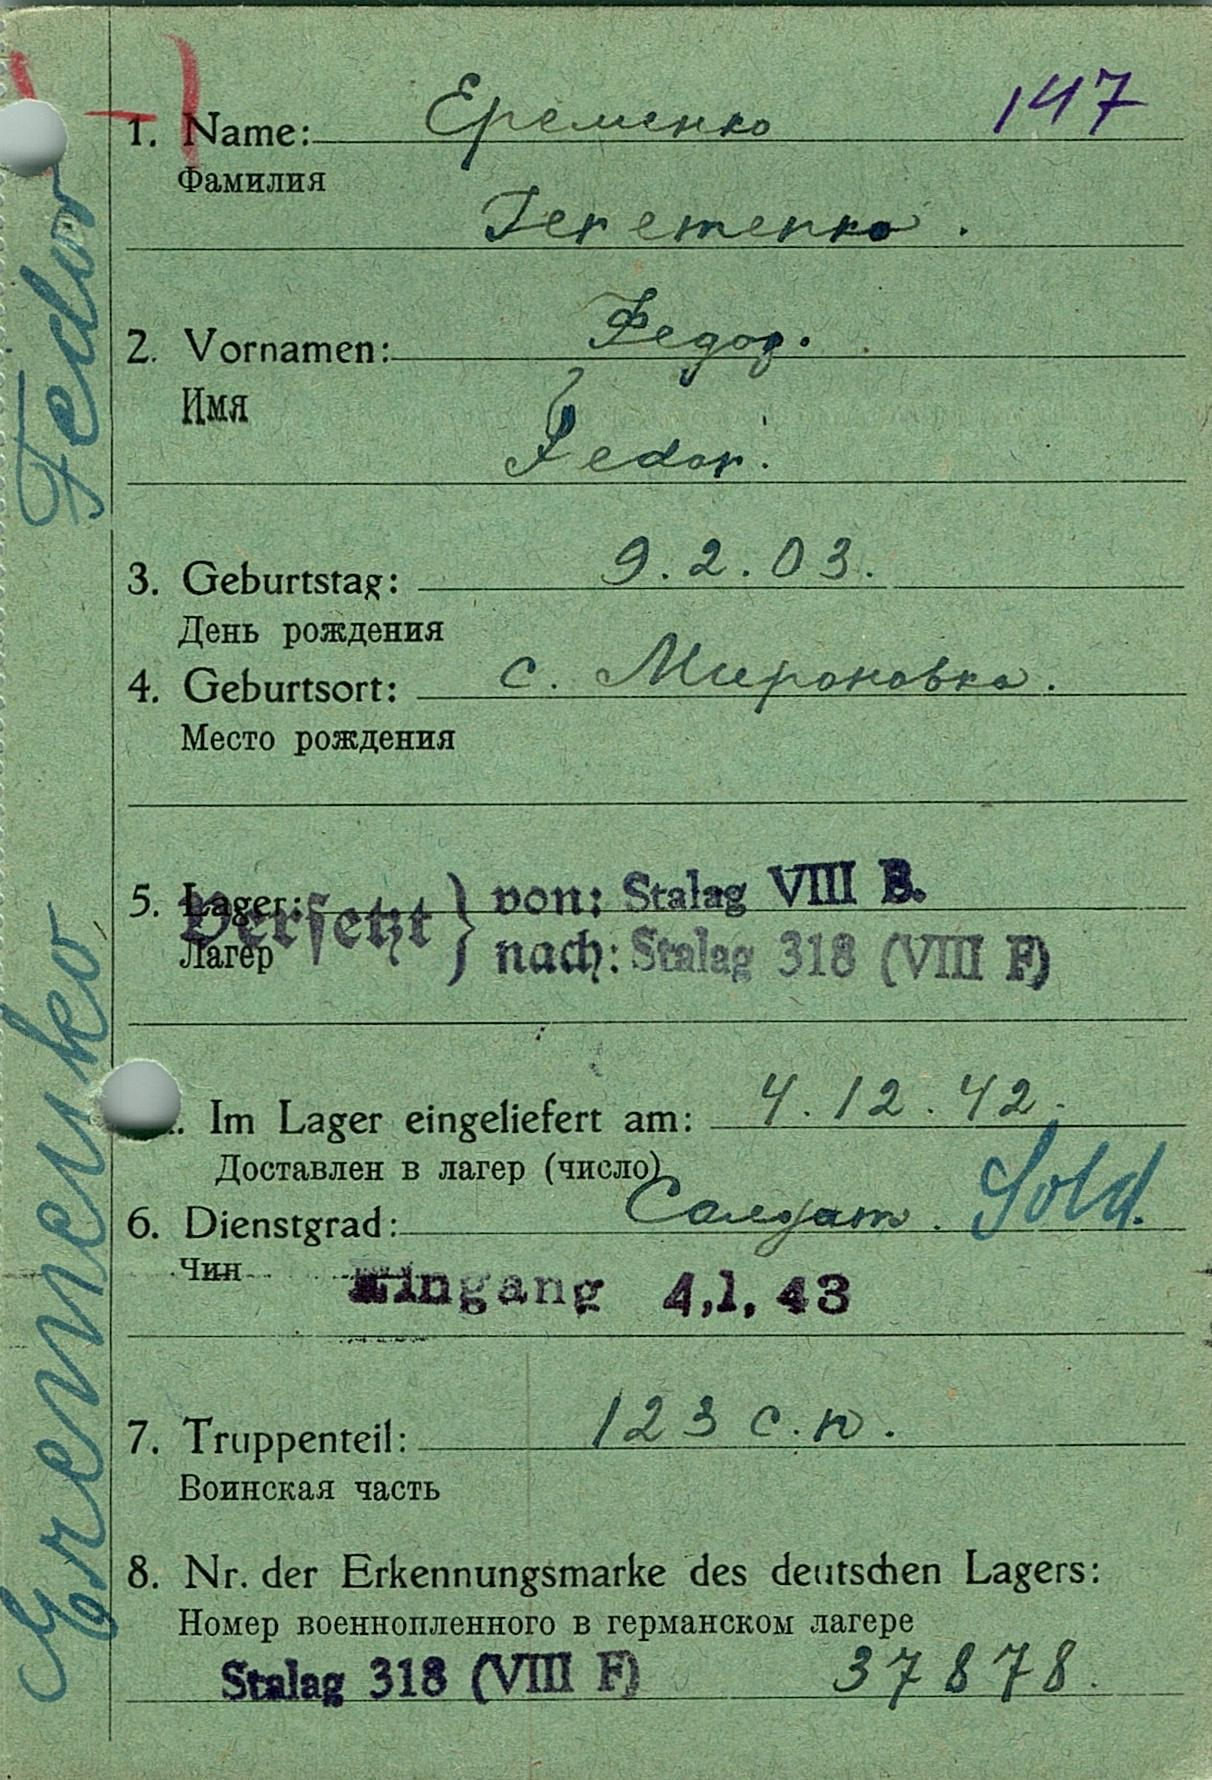 147
1. Name: Еременко
Фамилия
Jeremenko.
2. Vornamen: Федор.
Имя
Fedor.
3. Geburtstag: 9.2.03.
День рождения
4. Geburtsort: с. Мироновка.
Место рождения
5. Lager:
Лагер
Versetzt } von: Stalag VIII B.
nach: Stalag 318 (VIII F)
Im Lager eingeliefert am: 4.12.42.
Доставлен в лагер (число)
6. Dienstgrad: Салдат. Sold.
Чин
Eingang 4.1.43
7. Truppenteil: 123 с.п.
Воинская часть
8. Nr. der Erkennungsmarke des deutschen Lagers:
Номер военнопленного в германском лагере
Stalag 318 (VIII F) 37878.
Eremenko Fedor